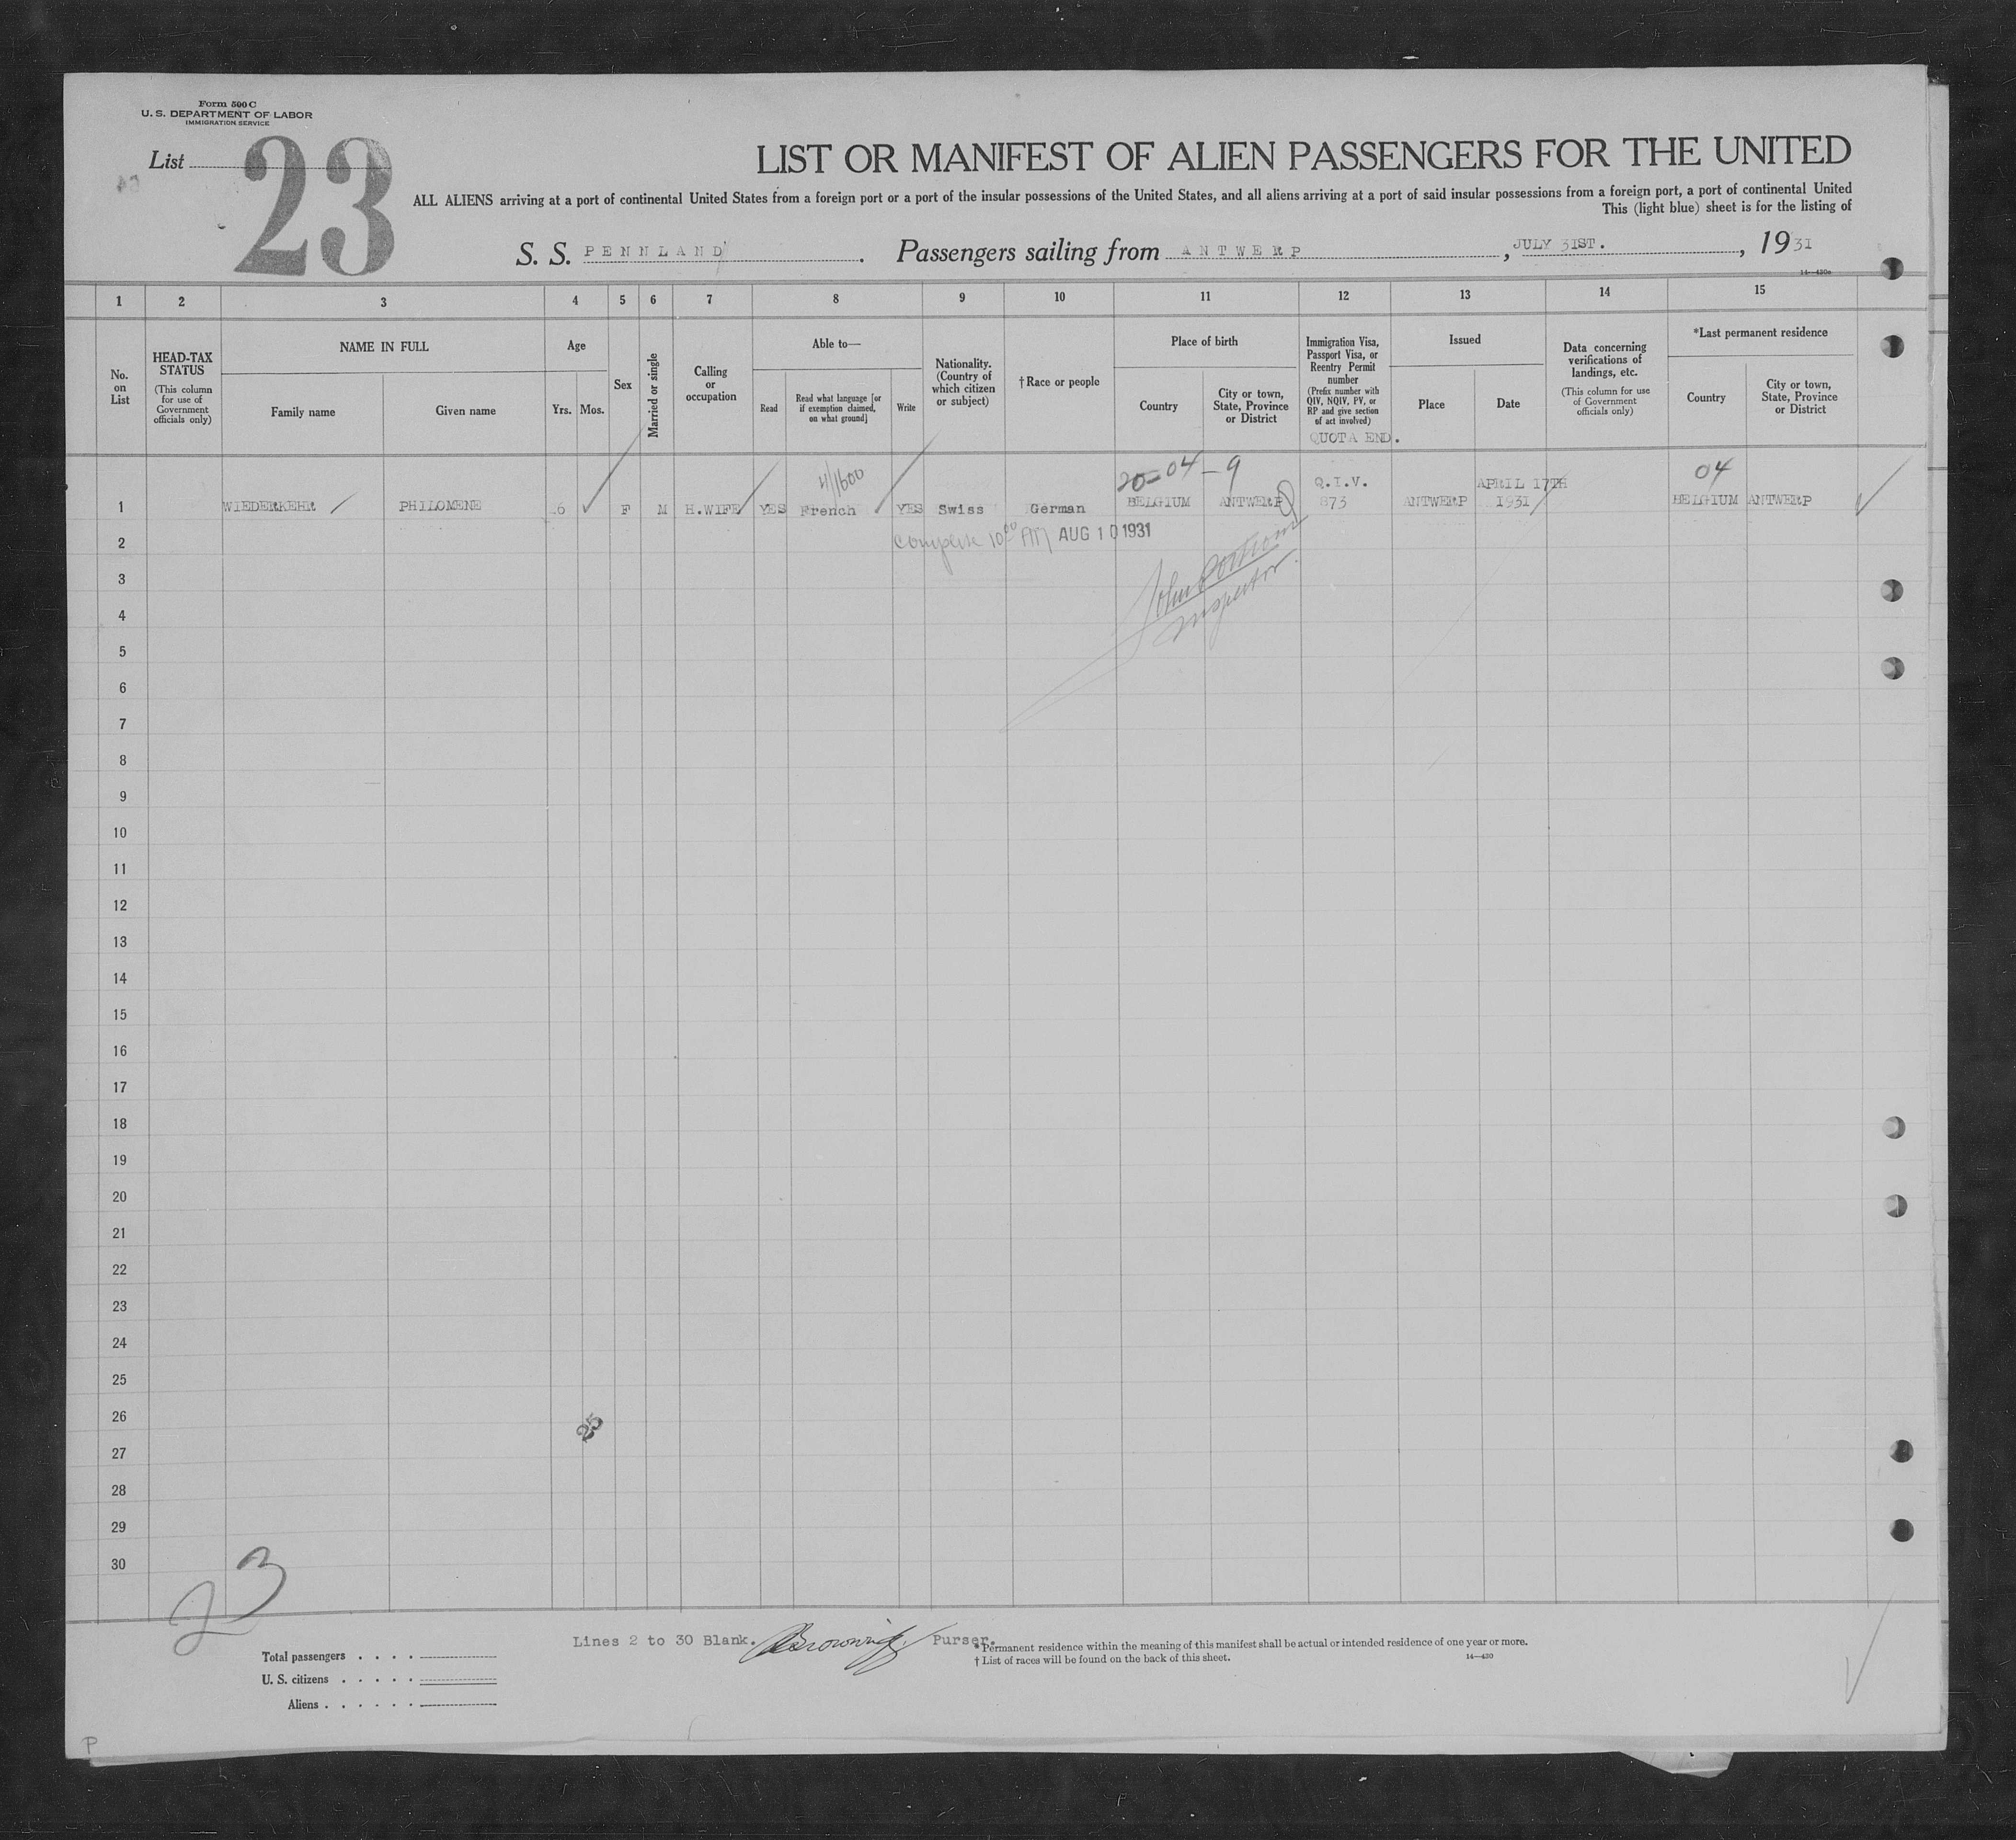 Form 500 C
U. S. DEPARTMENT OF LABOR
IMMIGRATION SERVICE
List 23
LIST OR MANIFEST OF ALIEN PASSENGERS FOR THE UNITED
ALL ALIENS arriving at a port of continental United States from a foreign port or a port of the insular possessions of the United States, and all aliens arriving at a port of said insular possessions from a foreign port, a port of continental United
This (light blue) sheet is for the listing of
S. S. PENNLAND. Passengers sailing from ANTWERP, JULY 31ST., 1931
14—430a
1 2 3 4 5 6 7 8 9 10 11 12 13 14 15
No. on List
HEAD-TAX STATUS
(This column for use of Government officials only)
NAME IN FULL
Family name
Given name
Age
Yrs. Mos.
Sex
Married or single
Calling or occupation
Able to—
Read
Read what language [or if exemption claimed, on what ground]
Write
Nationality. (Country of which citizen or subject)
†Race or people
Place of birth
Country
City or town, State, Province or District
Immigration Visa, Passport Visa, or Reentry Permit number
(Prefix number with QIV, NQIV, PV, or RP and give section of act involved)
QUOTA END.
Issued
Place
Date
Data concerning verifications of landings, etc.
(This column for use of Government officials only)
*Last permanent residence
Country
City or town, State, Province or District
4/1600 20-04-9 Q.I.V. APRIL 17TH 04
1 WIEDERKEHR PHILOMENE 6 F M H.WIFE YES French YES Swiss German BELGIUM ANTWERP 873 ANTWERP 1931 BELGIUM ANTWERP
2 10 00 AM AUG 10 1931
3
Inspector.
4
5
6
7
8
9
10
11
12
13
14
15
16
17
18
19
20
21
22
23
24
25
26
25
27
28
29
30
23
Lines 2 to 30 Blank. Purser.
*Permanent residence within the meaning of this manifest shall be actual or intended residence of one year or more.
† List of races will be found on the back of this sheet.
14—430
Total passengers
U. S. citizens
Aliens
P